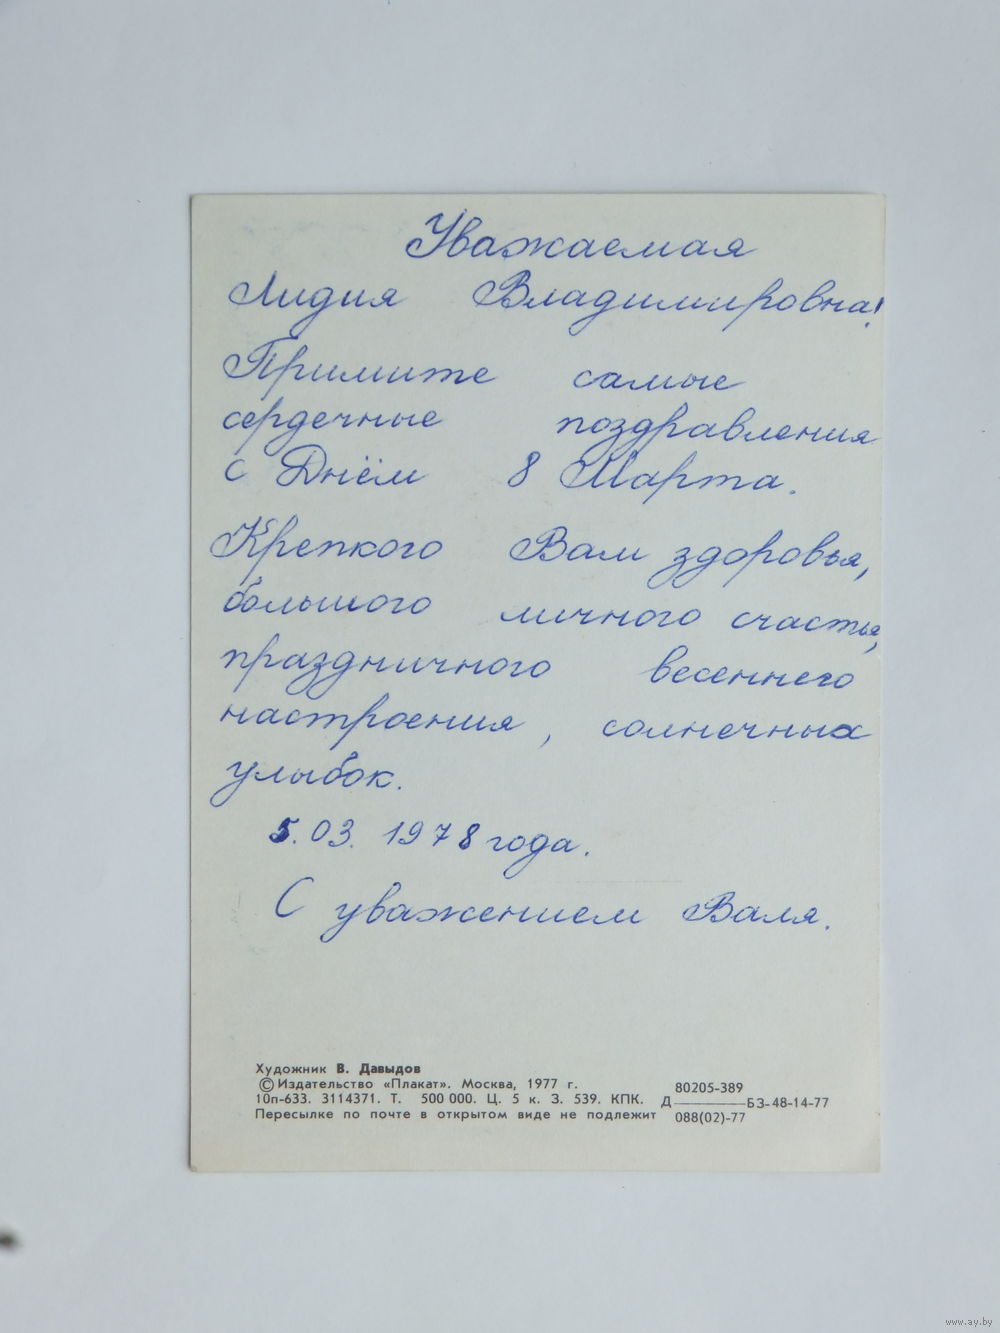 Уважаемая
Лидия Владимировна!
Примите самые
сердечные поздравления
с Днём 8 Марта.
Крепкого Вам здоровья,
большого личного счастья,
праздничного весеннего
настроения, солнечных
улыбок.
5.03.1978 года.
С уважением Валя.
Художник В. Давыдов
© Издательство «Плакат». Москва, 1977 г.
10п-633. 3114371. Т. 500 000. Ц. 5 к. З. 539. КПК.
Пересылке по почте в открытом виде не подлежит
80205-389
Д————БЗ-48-14-77
088(02)-77
www.ay.by